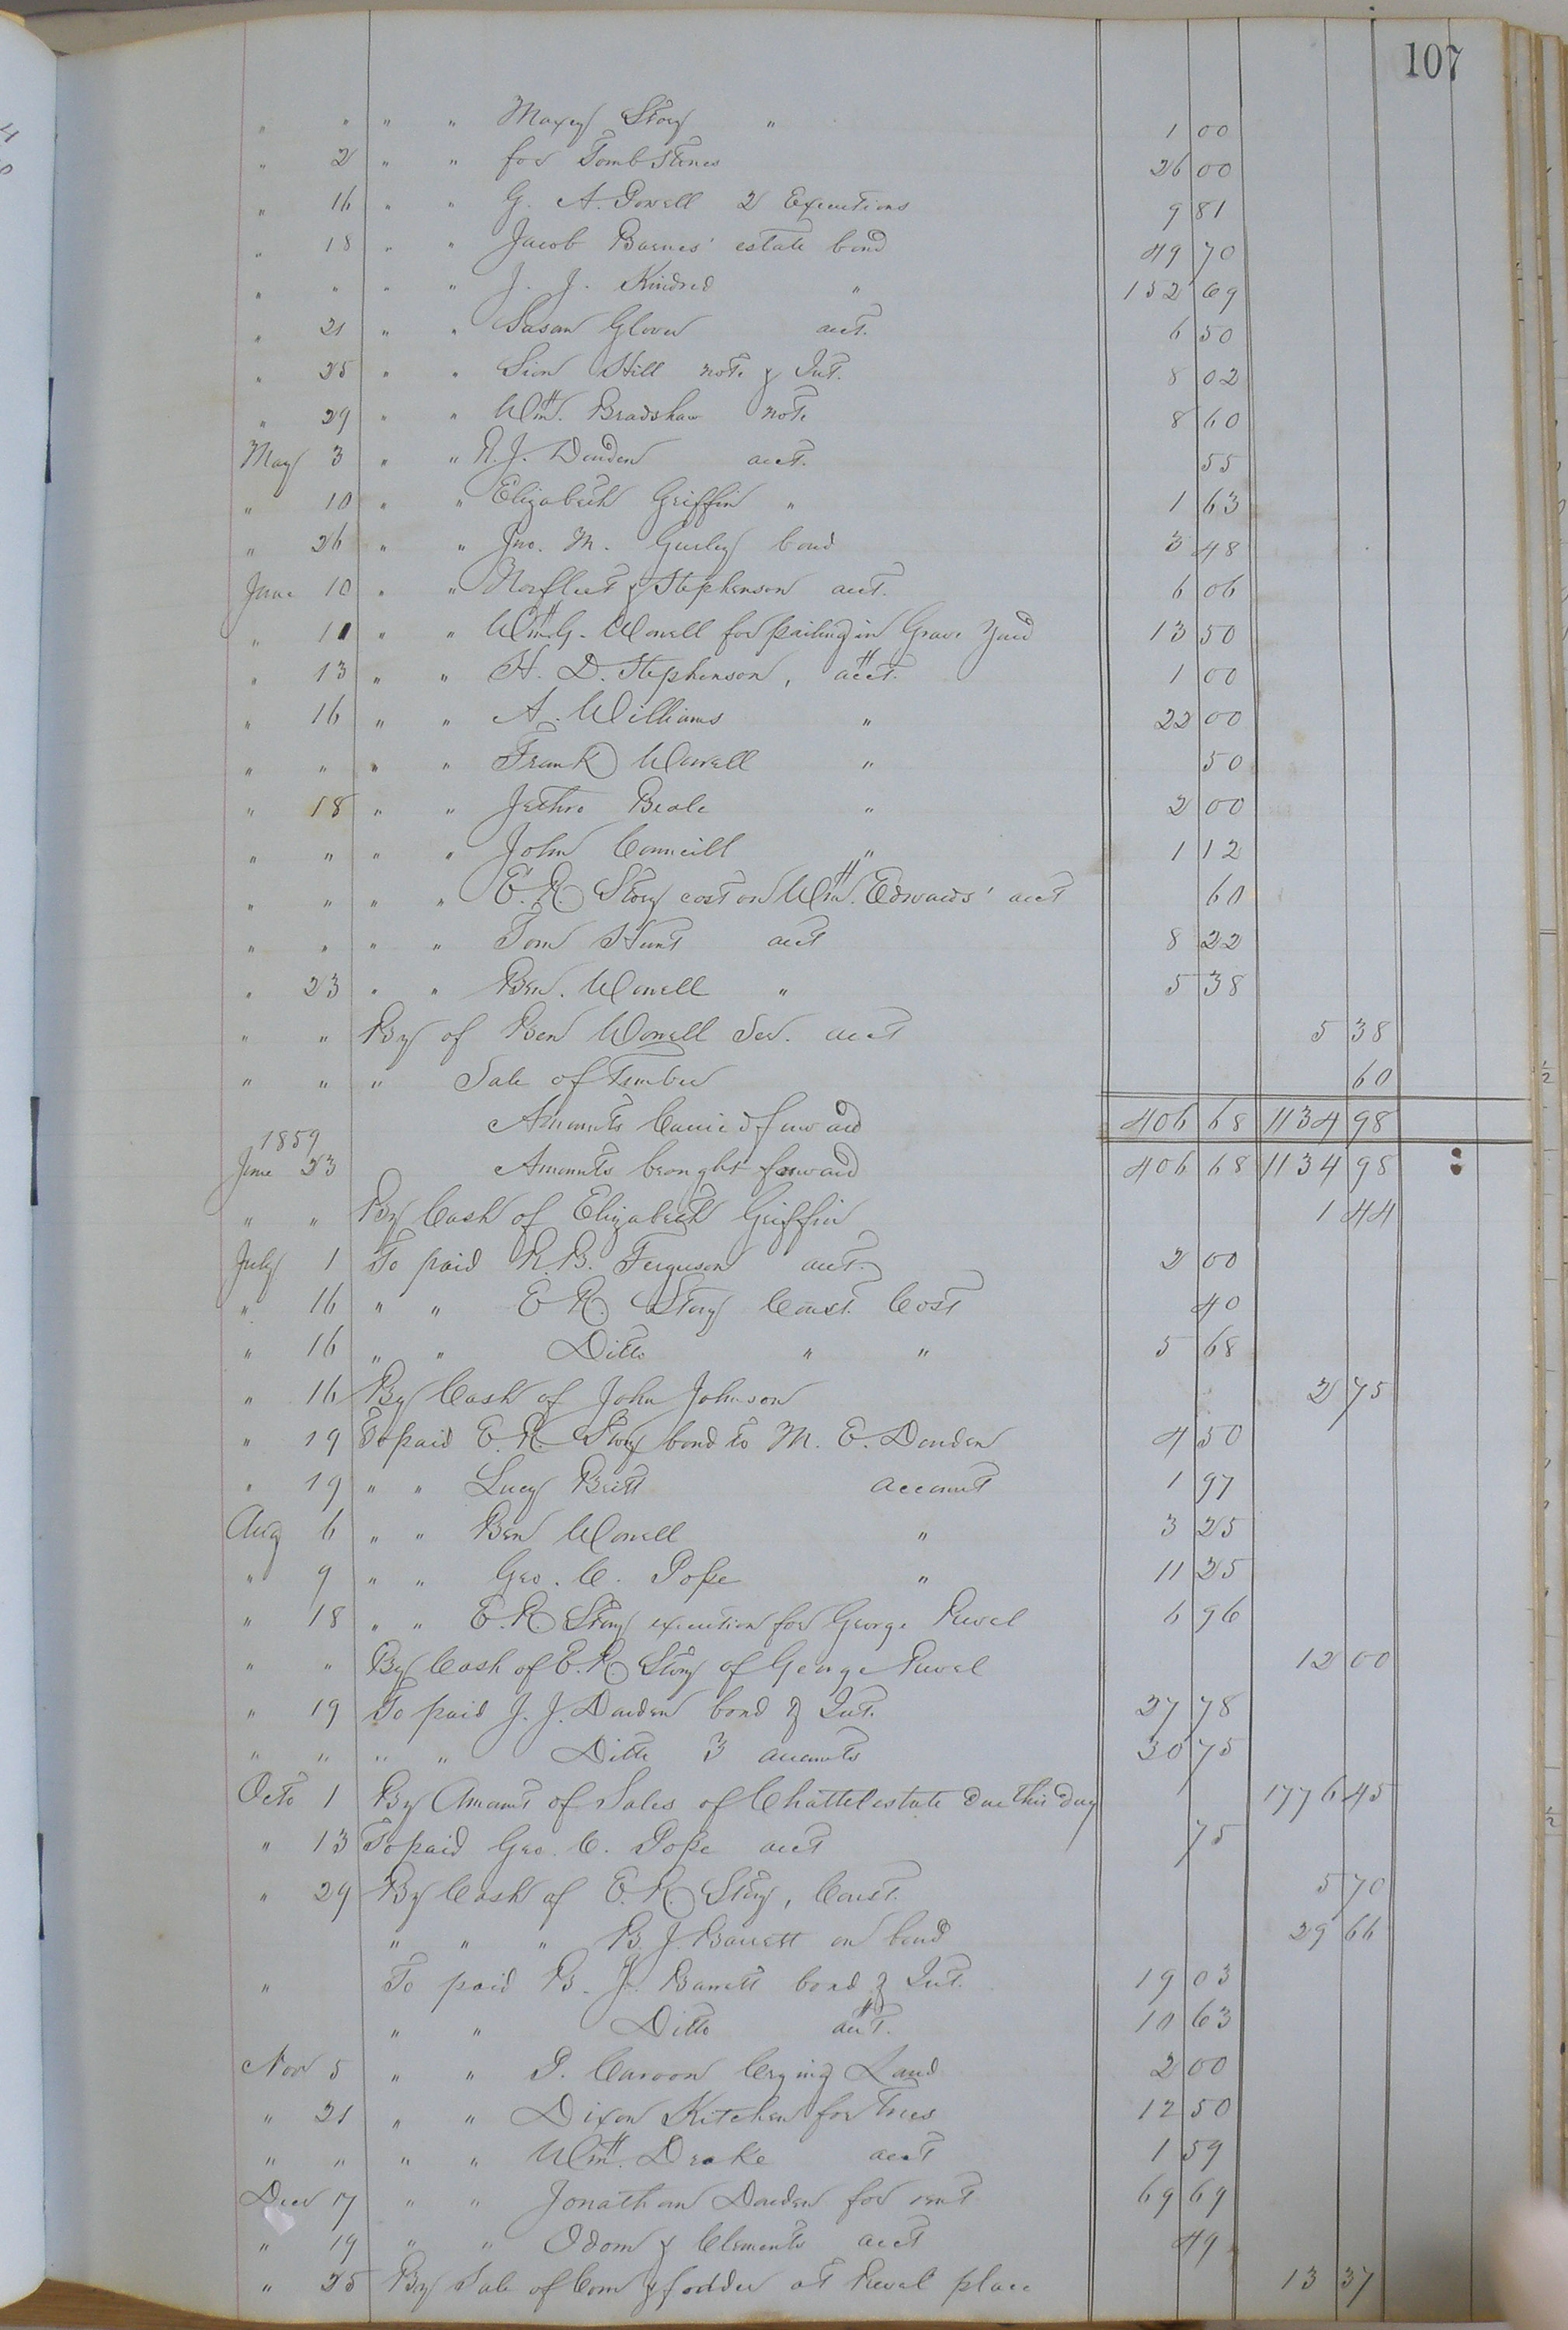 107
" " " " Maxey Story " 1 00
" 2 " " for Tomb Stones 26 00
" 16 " " G. A. Powell 2 Executions 9 81
" 18 " " Jacob Barnes' estate bond 49 70
" " " " J. J. Kindred " 152 69
" 21 " " Susan Glover acct. 6 50
" 25 " " Sion Hill note & Int. 8 02
" 29 " " Wm. Bradshaw note 8 60
May 3 " " R. J. Darden acct. 55
" 10 " " Elizabeth Griffin " 1 63
" 26 " " Jno. M. Gurley bond 3 48
June 10 " " Norfleet & Stephenson acct. 6 06
" 11 " " Wm. G. Worrell for pailing in Grave Yard 13 50
" 13 " " H. D. Stephenson, acct. 1 00
" 16 " " A. Williams " 22 00
" " " " Frank Worrell " 50
" 18 " " Jethro Beale " 2 00
" " " " John Councill " 1 12
" " " " E. R. Story cost on Wm. Edwards' acct 60
" " " " Tom Hunt acct 8 22
" 23 " " Ben. Worrell " 5 38
" " By of Ben Worrell Sen. acct 5 38
" " " Sale of Timber 60
Amounts Carried forward 406 68 1134 98
1859
June 23 Amounts brought forward 406 68 1134 98
" " By Cash of Elizabeth Griffin 1 44
July 1 To paid R. B. Ferguson acct. 2 00
" 16 " " E R. Story Const. Cost 40
" 16 " " Ditto " " 5 68
" 16 By Cash of John Johnson 2 75
" 19 To paid E. R. Story bond to M. E. Darden 4 50
" 19 " " Lucy Britt account 1 97
Aug 6 " " Ben Worrell " 3 25
" 9 " " Geo. C. Pope " 11 25
" 18 " " E. R. Story execution for George Revel 6 96
" " By Cash of E. R Story of George Revel 12 00
" 19 To paid J. J. Darden bond & Int. 27 78
" " " " Ditto 3 accounts 30 75
Octo 1 By Amount of Sales of Chattel estate Due this day 1776 45
" 13 To paid Geo. C. Pope acct 75
" 29 By Cash of E. R Story, Const. 5 70
" " " B. J. Barrett on bond 29 66
" To paid B. J. Barrett bond & Int. 19 03
" " Ditto acct. 10 63
Nov 5 " " P. Caroon Crying Land 2 00
" 21 " " Dixon Kitchen for Trees 12 50
" " " " Wm. Drake acct 1 59
Decr 17 " " Jonathan Darden for rent 69 69
" 19 " " Odom & Clements acct 49
" 25 By Sale of Corn & fodder at Revel place 13 37